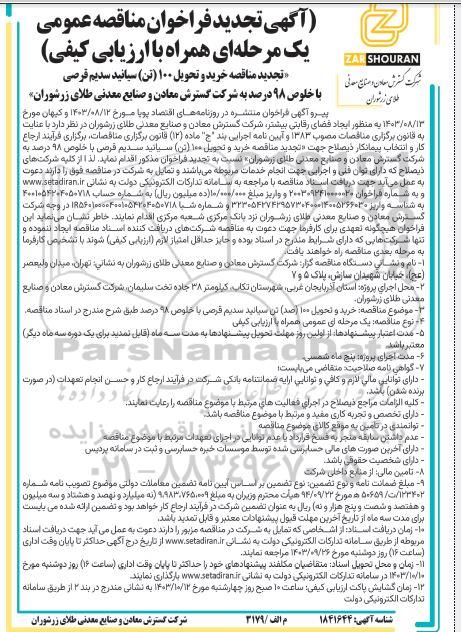 (آگهی تجدید فراخوان مناقصه عمومی
یک مرحله‌ای همراه با ارزیابی کیفی)
«تجدید مناقصه خرید و تحویل ۱۰۰ (تن) سیانید سدیم قرصی
با خلوص ۹۸ درصد به شرکت گسترش معادن و صنایع معدنی طلای زرشوران»
ZAR SHOURAN
شرکت گسترش معادن و صنایع معدنی
طلای زرشوران
پیرو آگهی فراخوان منتشره در روزنامه‌های اقتصاد پویا مورخ ۱۴۰۳/۰۸/۱۲ و کیهان مورخ
۱۴۰۳/۰۸/۱۳ به منظور ایجاد فضای رقابتی بیشتر، شرکت گسترش معادن و صنایع معدنی طلای زرشوران در نظر دارد با عنایت
به قانون برگزاری مناقصات مصوب ۱۳۸۳ و آیین نامه اجرایی بند "ج" ماده (۱۲) قانون برگزاری مناقصات، برگزاری فرآیند ارجاع
کار و انتخاب پیمانکار ذیصلاح جهت «تجدید مناقصه خرید و تحویل ۱۰۰ (تن) سیانید سدیم قرصی با خلوص ۹۸ درصد به
شرکت گسترش معادن و صنایع معدنی طلای زرشوران» نسبت به تجدید فراخوان مذکور اقدام نماید. لذا از کلیه شرکت‌های
ذیصلاح که دارای توان فنی و اجرایی جهت انجام خدمات مربوطه می‌باشند و تمایل به شرکت در مناقصه فوق را دارند دعوت
به عمل می‌آید جهت دریافت اسناد مناقصه با مراجعه به سامانه تدارکات الکترونیکی دولت به نشانی www.setadiran.ir
گسترش معادن و صنایع معدنی طلای زرشوران نزد بانک مرکزی شعبه مرکزی اقدام نمایند. خاطر نشان می‌نماید این
فراخوان هیچگونه تعهدی برای کارفرما جهت دعوت به مناقصه شرکت‌های دریافت کننده اسناد مناقصه ایجاد ننموده و
تنها شرکت‌هایی که دارای شرایط مندرج در اسناد بوده و حایز حداقل امتیاز لازم (ارزیابی کیفی) شوند با تشخیص کارفرما
به مرحله بعدی مناقصه راه خواهند یافت.
۱- نام و نشانی دستگاه مناقصه گزار: شرکت گسترش معادن و صنایع معدنی طلای زرشوران به نشانی: تهران، میدان ولیعصر
(عج)، خیابان شهیدان سازش، پلاک ۵ و ۷
۲- محل اجرای پروژه: استان آذربایجان غربی، شهرستان تکاب، کیلومتر ۳۸ جاده تخت سلیمان، شرکت گسترش معادن و صنایع
معدنی طلای زرشوران.
۳- موضوع مناقصه: خرید و تحویل ۱۰۰ (صد) تن سیانید سدیم قرصی با خلوص ۹۸ درصد طبق شرح مندرج در اسناد مناقصه.
۴- نوع مناقصه: یک مرحله ای عمومی همراه با ارزیابی کیفی
۵- مدت اعتبار پیشنهادها: از اولین روز مهلت تحویل پیشنهادها به مدت سه ماه (قابل تمدید برای یک دوره سه ماه دیگر)
معتبر باشد.
۶- مدت اجرای پروژه: پنج ماه شمسی.
۷- گواهی نامه صلاحیت: متقاضی می‌بایست؛
- دارای توانایی مالی لازم و کافی و توانایی ارایه ضمانتنامه بانکی شرکت در فرآیند ارجاع کار و حسن انجام تعهدات (در صورت
برنده شدن) باشد.
- کلیه الزامات مراجع ذیصلاح در اجرای فعالیت های مرتبط با موضوع مناقصه را رعایت نمایند.
- دارای تخصص و تجربه کاری مفید و مرتبط با موضوع مناقصه باشد.
- توانمندی در تامین به موقع کالای موضوع مناقصه
- عدم داشتن سابقه منجر به فسخ قرارداد یا عدم توانایی در اجرای تعهدات مرتبط با موضوع مناقصه
- دارای آخرین صورت های مالی حسابرسی شده توسط موسسات خبره حسابرسی و ثبت در سامانه پردیس
- دارای شخصیت حقوقی باشد.
۸- تامین مالی: از منابع داخلی شرکت
۹- مبلغ ضمانت نامه و نوع تضمین: نوع تضمین بر اساس آیین نامه تضمین معاملات دولتی موضوع تصویب نامه شماره
۱۲۳۴۰۲/ت۵۰۶۵۹ ه مورخ ۹۴/۰۹/۲۲ هیأت محترم وزیران به مبلغ ۹,۹۸۳,۷۶۵,۰۰۹ (نه میلیارد و نهصد و هشتاد و سه میلیون
و هفتصد و شصت و پنج هزار و نه) ریال به عنوان تضمین شرکت در فرآیند ارجاع کار خواهد بود و تضمین ارائه شده می بایست
برای مدت سه ماه از تاریخ آخرین مهلت قبول پیشنهادات معتبر و قابل تمدید باشد.
۱۰- زمان دریافت اسناد: از اشخاصی که تمایل به شرکت در مناقصه مزبور را دارند دعوت به عمل می آید جهت دریافت اسناد
مربوطه از طریق سامانه تدارکات الکترونیکی دولت به نشانی www.setadiran.ir از تاریخ درج آگهی حداکثر تا پایان وقت اداری
(ساعت ۱۶) روز دوشنبه مورخ ۱۴۰۳/۰۹/۲۶ مراجعه نمایند.
۱۱- زمان و محل تحویل اسناد: متقاضیان مکلفند پیشنهادهای خود را حداکثر تا پایان وقت اداری (ساعت ۱۶) روز دوشنبه مورخ
۱۴۰۳/۱۰/۱۰ در سامانه تدارکات الکترونیکی دولت به نشانی www.setadiran.ir بارگذاری نمایند.
۱۲- زمان گشایش پاکت ارزیابی کیفی: ساعت ۱۰ صبح روز چهارشنبه مورخ ۱۴۰۳/۱۰/۱۲ به نشانی مندرج در بند ۲ از طریق سامانه
تدارکات الکترونیکی دولت
شناسه آگهی: ۱۸۴۱۶۴۴
م الف / ۳۱۷۹
شرکت گسترش معادن و صنایع معدنی طلای زرشوران